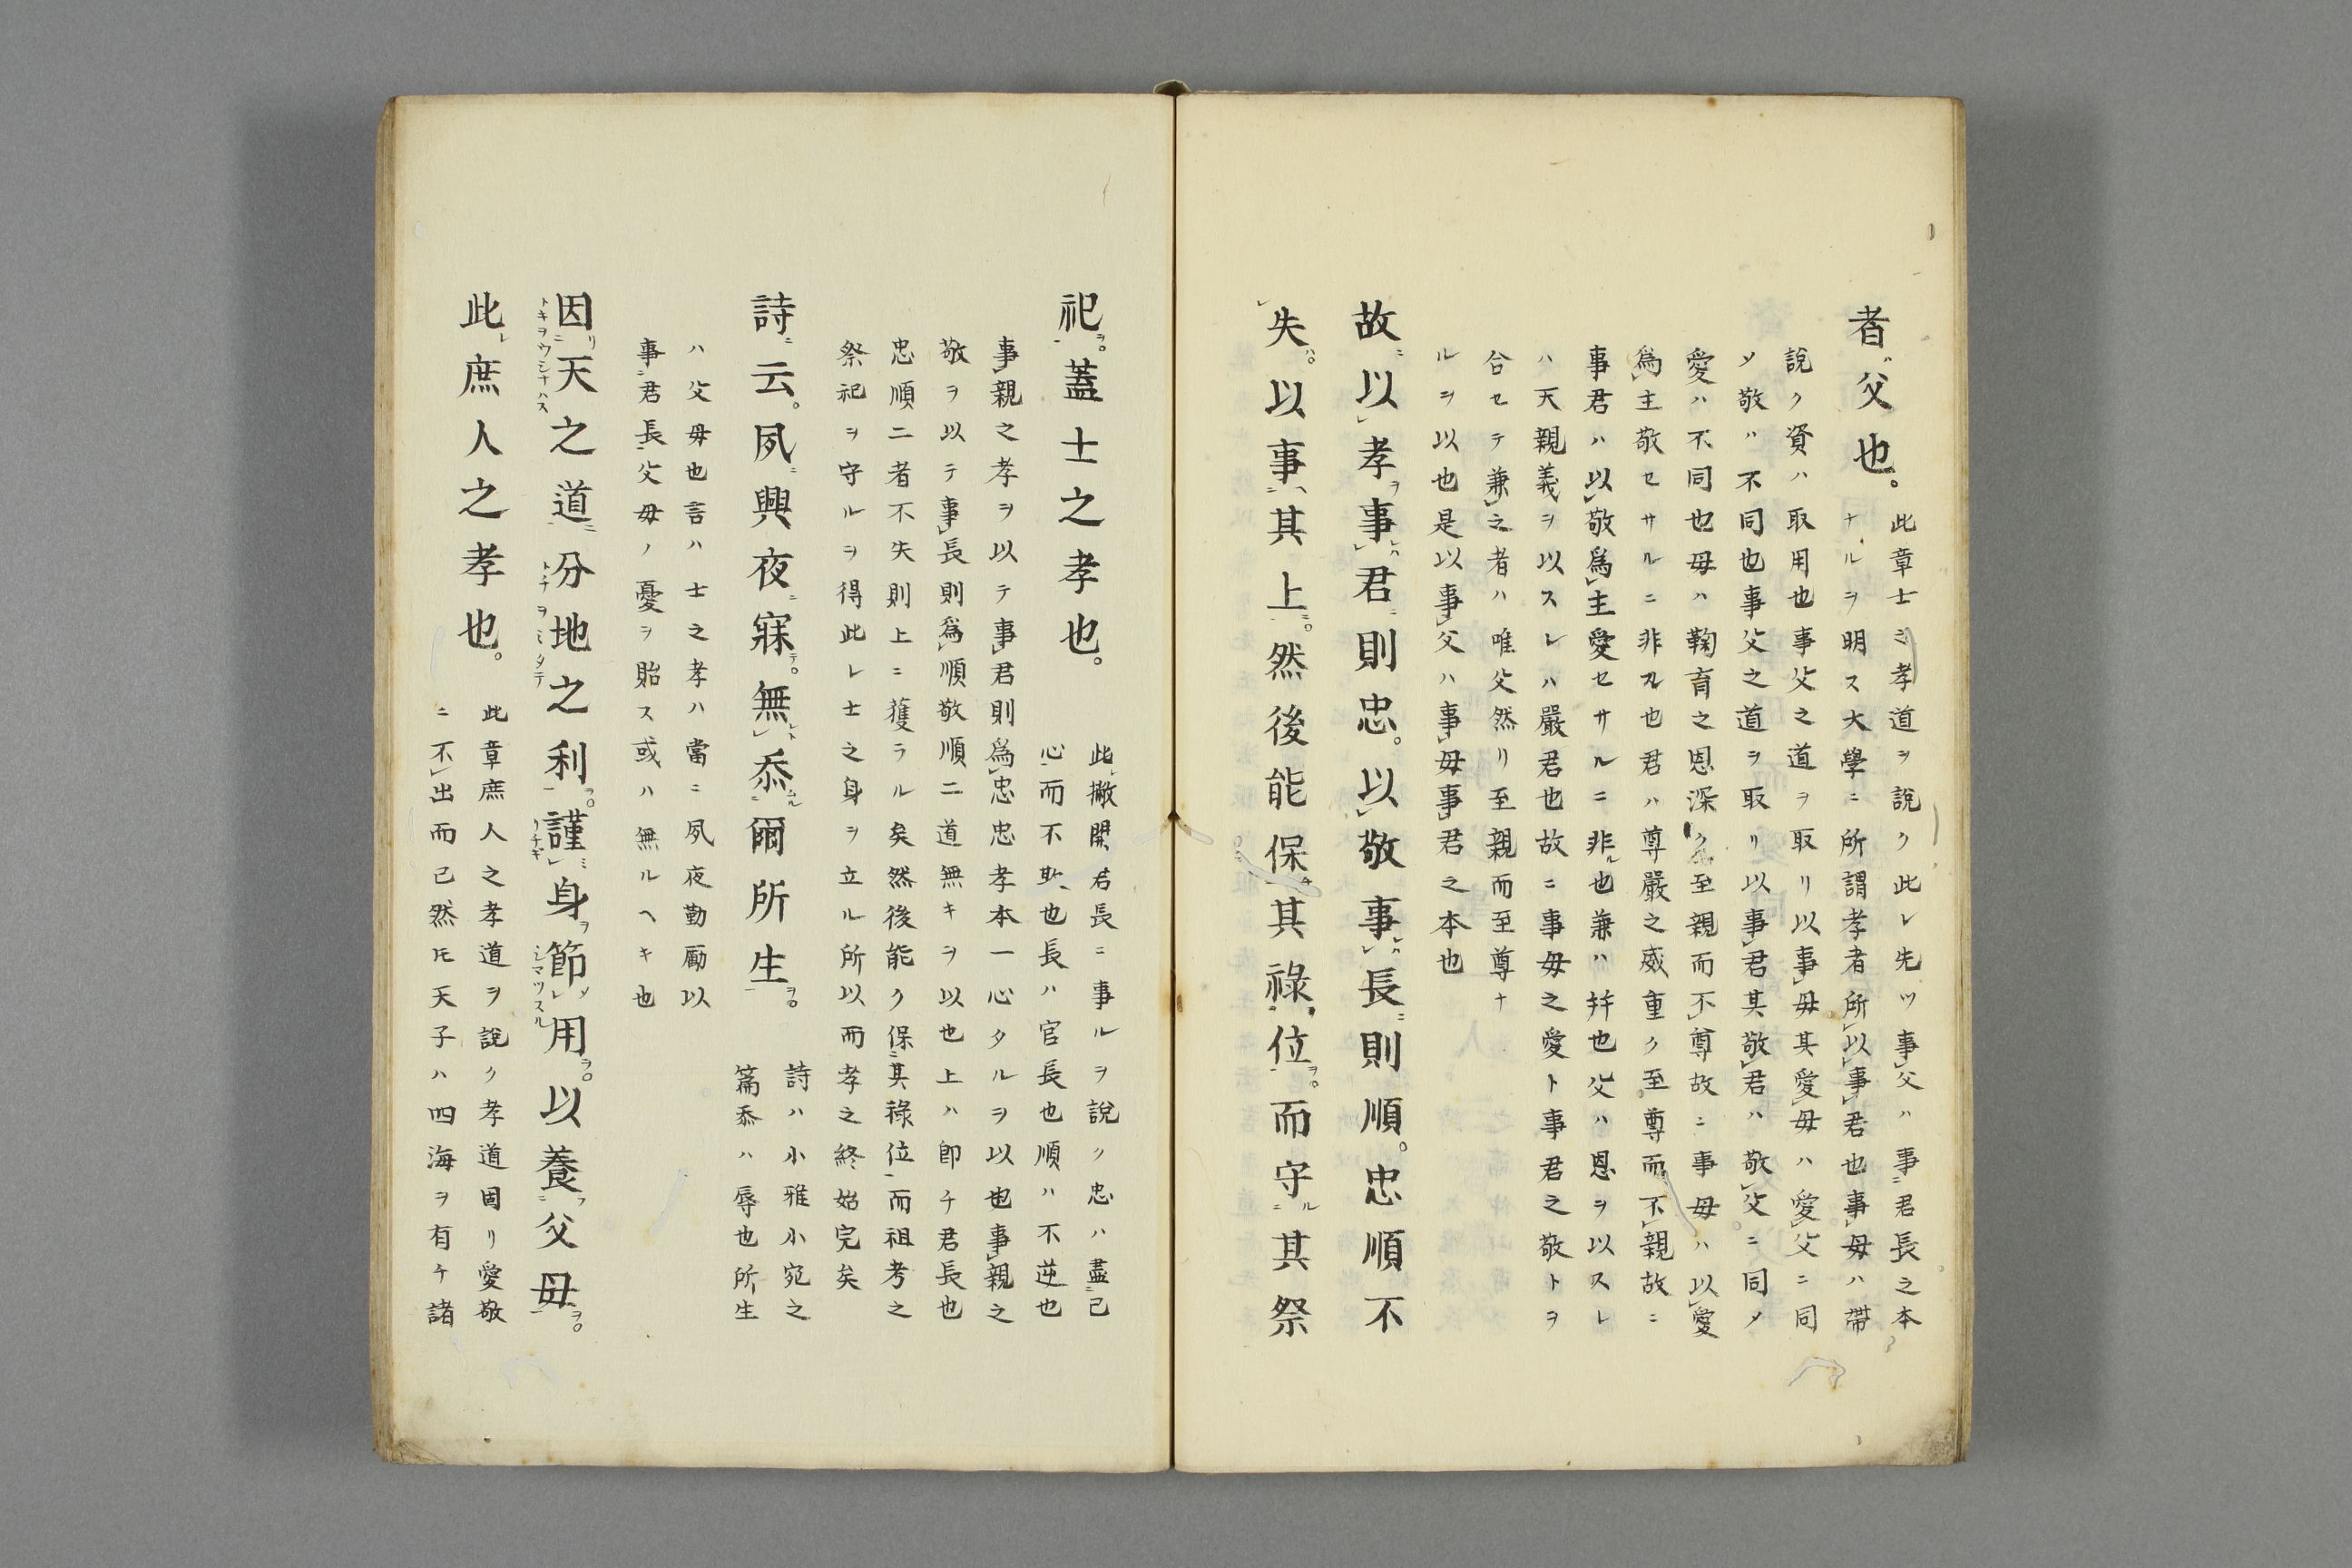 者父也。
此章士ノ孝道ヲ說ク此レ先ツ事父ハ事君長之本
ナルヲ明ス大學ニ所謂孝者所以事君也事母ハ帶
說ク資ハ取用也事父之道ヲ取リ以事母其愛母ハ愛父ニ同
〆敬ハ不同也事父之道ヲ取リ以事君其敬君ハ敬父ニ同〆
愛ハ不同也母ハ鞠育之恩深ク至親而不尊故ニ事母ハ以愛
爲主敬セサルニ非ル也君ハ尊嚴之威重ク至尊而不親故ニ
事君ハ以敬爲主愛セサルニ非ル也兼ハ幷也父ハ恩ヲ以スレ
ハ天親義ヲ以スレハ嚴君也故ニ事母之愛ト事君之敬トヲ
合セテ兼之者ハ唯父然リ至親而至尊ナ
ルヲ以也是以事父ハ事母事君之本也
故ニ以孝ヲ事レハ君ニ則忠。以敬事レハ長ニ則順。忠順不
失ハ。以事ヘ其上ニ。然後能保チ其祿位ヲ。而守ル其祭
祀ヲ。蓋士之孝也。
此撇開君長ニ事ルヲ說ク忠ハ盡己
心而不欺也長ハ官長也順ハ不逆也
事親之孝ヲ以テ事君則爲忠忠孝本一心タルヲ以也事親之
敬ヲ以テ事長則爲順敬順二道無キヲ以也上ハ卽チ君長也
忠順二者不失則上ニ獲ラル矣然後能ク保其祿位而祖考之
祭祀ヲ守ルヲ得此レ士之身ヲ立ル所以而孝之終始完矣
詩ニ云。夙ニ興夜ニ寐テ。無レト忝ムル爾所生ヲ。
詩ハ小雅小宛之
篇忝ハ辱也所生
ハ父母也言ハ士之孝ハ當ニ夙夜勤勵以
事君長父母ノ憂ヲ貽ス或ハ無ルヘキ也
因リ天之道ニ分地之利ヲ。謹ミ身ヲ節〆用ヲ。以養フ父母ヲ。
トキヲウシナハス トチヲミタテ リチギ シマツスル
此レ庶人之孝也。
此章庶人之孝道ヲ說ク孝道固リ愛敬
ニ不出而已然㆑天子ハ四海ヲ有チ諸